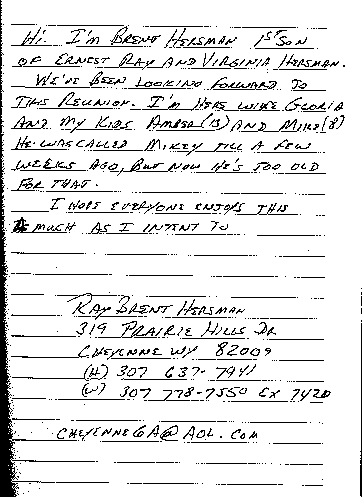 Hi. I'm Brent Hersman 1st Son
of Ernest Ray and Virginia Hersman.
We've been looking forward to
this Reunion. I'm here wife Gloria
and my kids Amber (13) and Mike (8)
He was called Mikey till a few
weeks ago, but now he's too old
for that.
I hope everyone enjoys this
as much as I intent to
Ray Brent Hersman
319 Prairie Hills Dr
Cheyenne WY 82009
(H) 307 637-7941
(W) 307 778-7550 Ex 7420
Cheyenne6A@AOL.com